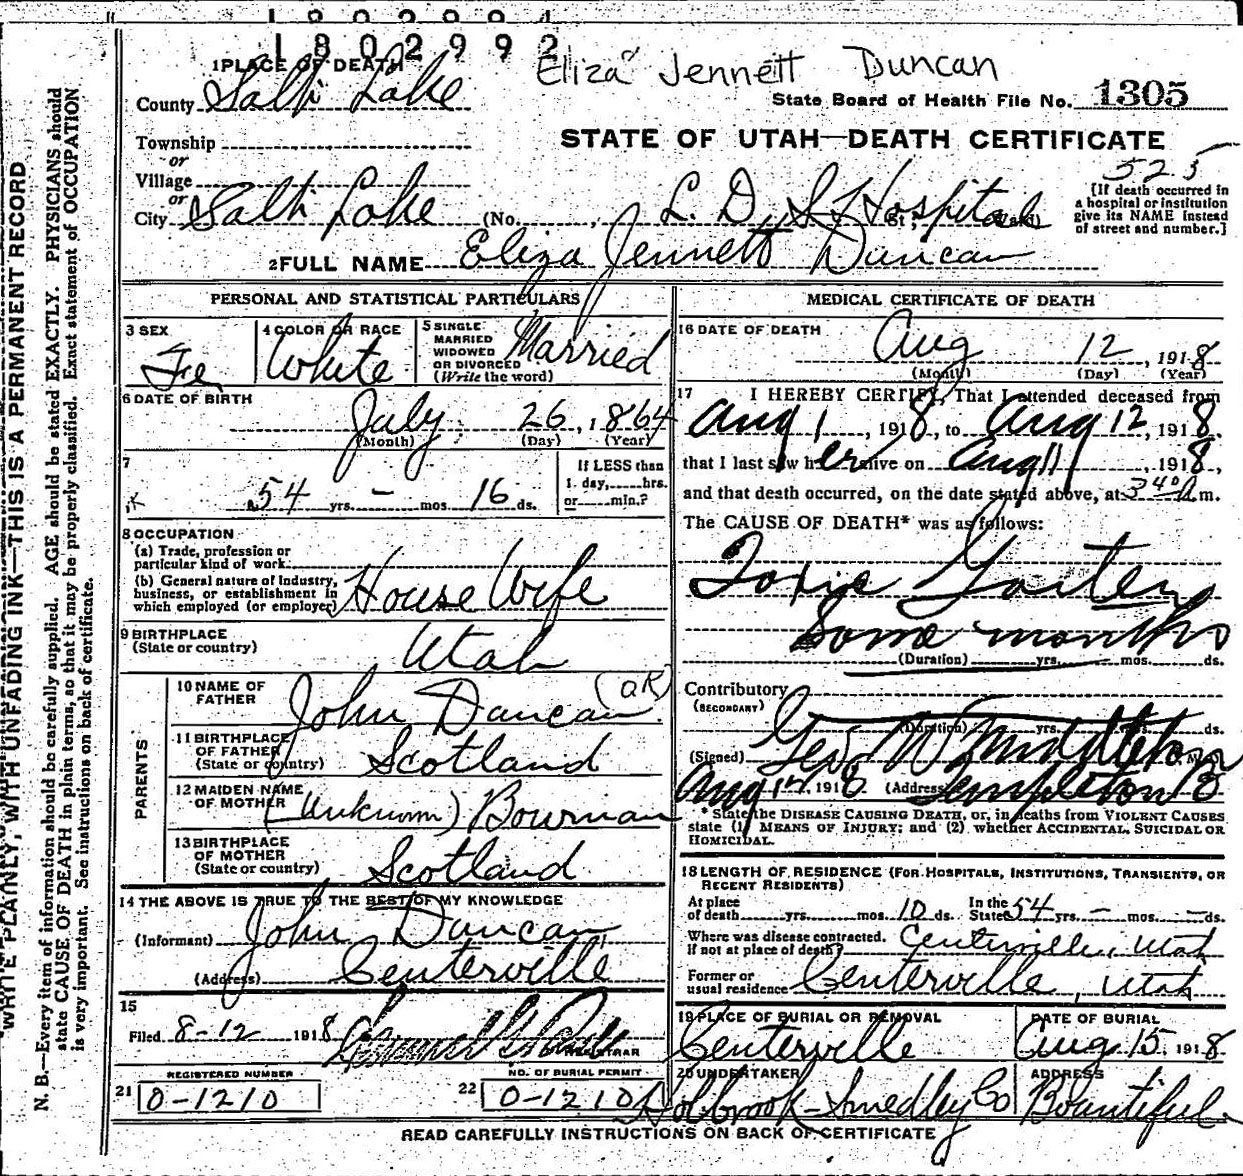 1802992
Eliza Jennett Duncan
1 PLACE OF DEATH
County Salt Lake
State Board of Health File No. 1305
Township
or
Village
or
City Salt Lake (No. L. D. S. Hospital St., Ward)
STATE OF UTAH—DEATH CERTIFICATE
525
[If death occurred in
a hospital or institution
give its NAME instead
of street and number.]
2 FULL NAME Eliza Jennett Duncan
PERSONAL AND STATISTICAL PARTICULARS
3 SEX
Fe
4 COLOR OR RACE
White
5 SINGLE
MARRIED
WIDOWED
OR DIVORCED
(Write the word)
Married
6 DATE OF BIRTH
July 26, 1864
(Month) (Day) (Year)
7
54 yrs. – mos. 16 ds.
If LESS than
1 day, hrs.
or min.?
8 OCCUPATION
(a) Trade, profession or
particular kind of work
(b) General nature of industry,
business, or establishment in
which employed (or employer)
House Wife
9 BIRTHPLACE
(State or country)
Utah
PARENTS
10 NAME OF
FATHER
John Duncan (OR)
11 BIRTHPLACE
OF FATHER
(State or country)
Scotland
12 MAIDEN NAME
OF MOTHER
(Unknown) Bowman
13 BIRTHPLACE
OF MOTHER
(State or country)
Scotland
14 THE ABOVE IS TRUE TO THE BEST OF MY KNOWLEDGE
(Informant) John Duncan
(Address) Centerville
15
Filed 8-12 1918
REGISTRAR
REGISTERED NUMBER
21 0-1210
NO. OF BURIAL PERMIT
22 0-1210
MEDICAL CERTIFICATE OF DEATH
16 DATE OF DEATH
Aug 12, 1918
(Month) (Day) (Year)
17 I HEREBY CERTIFY, That I attended deceased from
Aug 1, 1918, to Aug 12, 1918,
that I last saw her alive on Aug 11, 1918,
and that death occurred, on the date stated above, at 3 40 A m.
The CAUSE OF DEATH* was as follows:
Toxic Goiter
Some months
(Duration) yrs. mos. ds.
Contributory
(SECONDARY)
(Duration) yrs. ds.
(Signed) Geo W Middleton M.D.
Aug 12, 1918 (Address) Templeton B
* State the DISEASE CAUSING DEATH, or, in deaths from VIOLENT CAUSES
state (1) MEANS OF INJURY; and (2) whether ACCIDENTAL, SUICIDAL OR
HOMICIDAL.
18 LENGTH OF RESIDENCE (FOR HOSPITALS, INSTITUTIONS, TRANSIENTS, OR
RECENT RESIDENTS)
At place
of death yrs. mos. 10 ds. In the
State 54 yrs. – mos. – ds.
Where was disease contracted.
If not at place of death? Centerville, Utah
Former or
usual residence Centerville, Utah
19 PLACE OF BURIAL OR REMOVAL
Centerville
DATE OF BURIAL
Aug 15, 1918
20 UNDERTAKER
Holbrook-Smedley Co
ADDRESS
Bountiful
READ CAREFULLY INSTRUCTIONS ON BACK OF CERTIFICATE
WRITE PLAINLY, WITH UNFADING INK—THIS IS A PERMANENT RECORD
N. B.—Every item of information should be carefully supplied. AGE should be stated EXACTLY. PHYSICIANS should
state CAUSE OF DEATH in plain terms, so that it may be properly classified. Exact statement of OCCUPATION
is very important. See instructions on back of certificate.